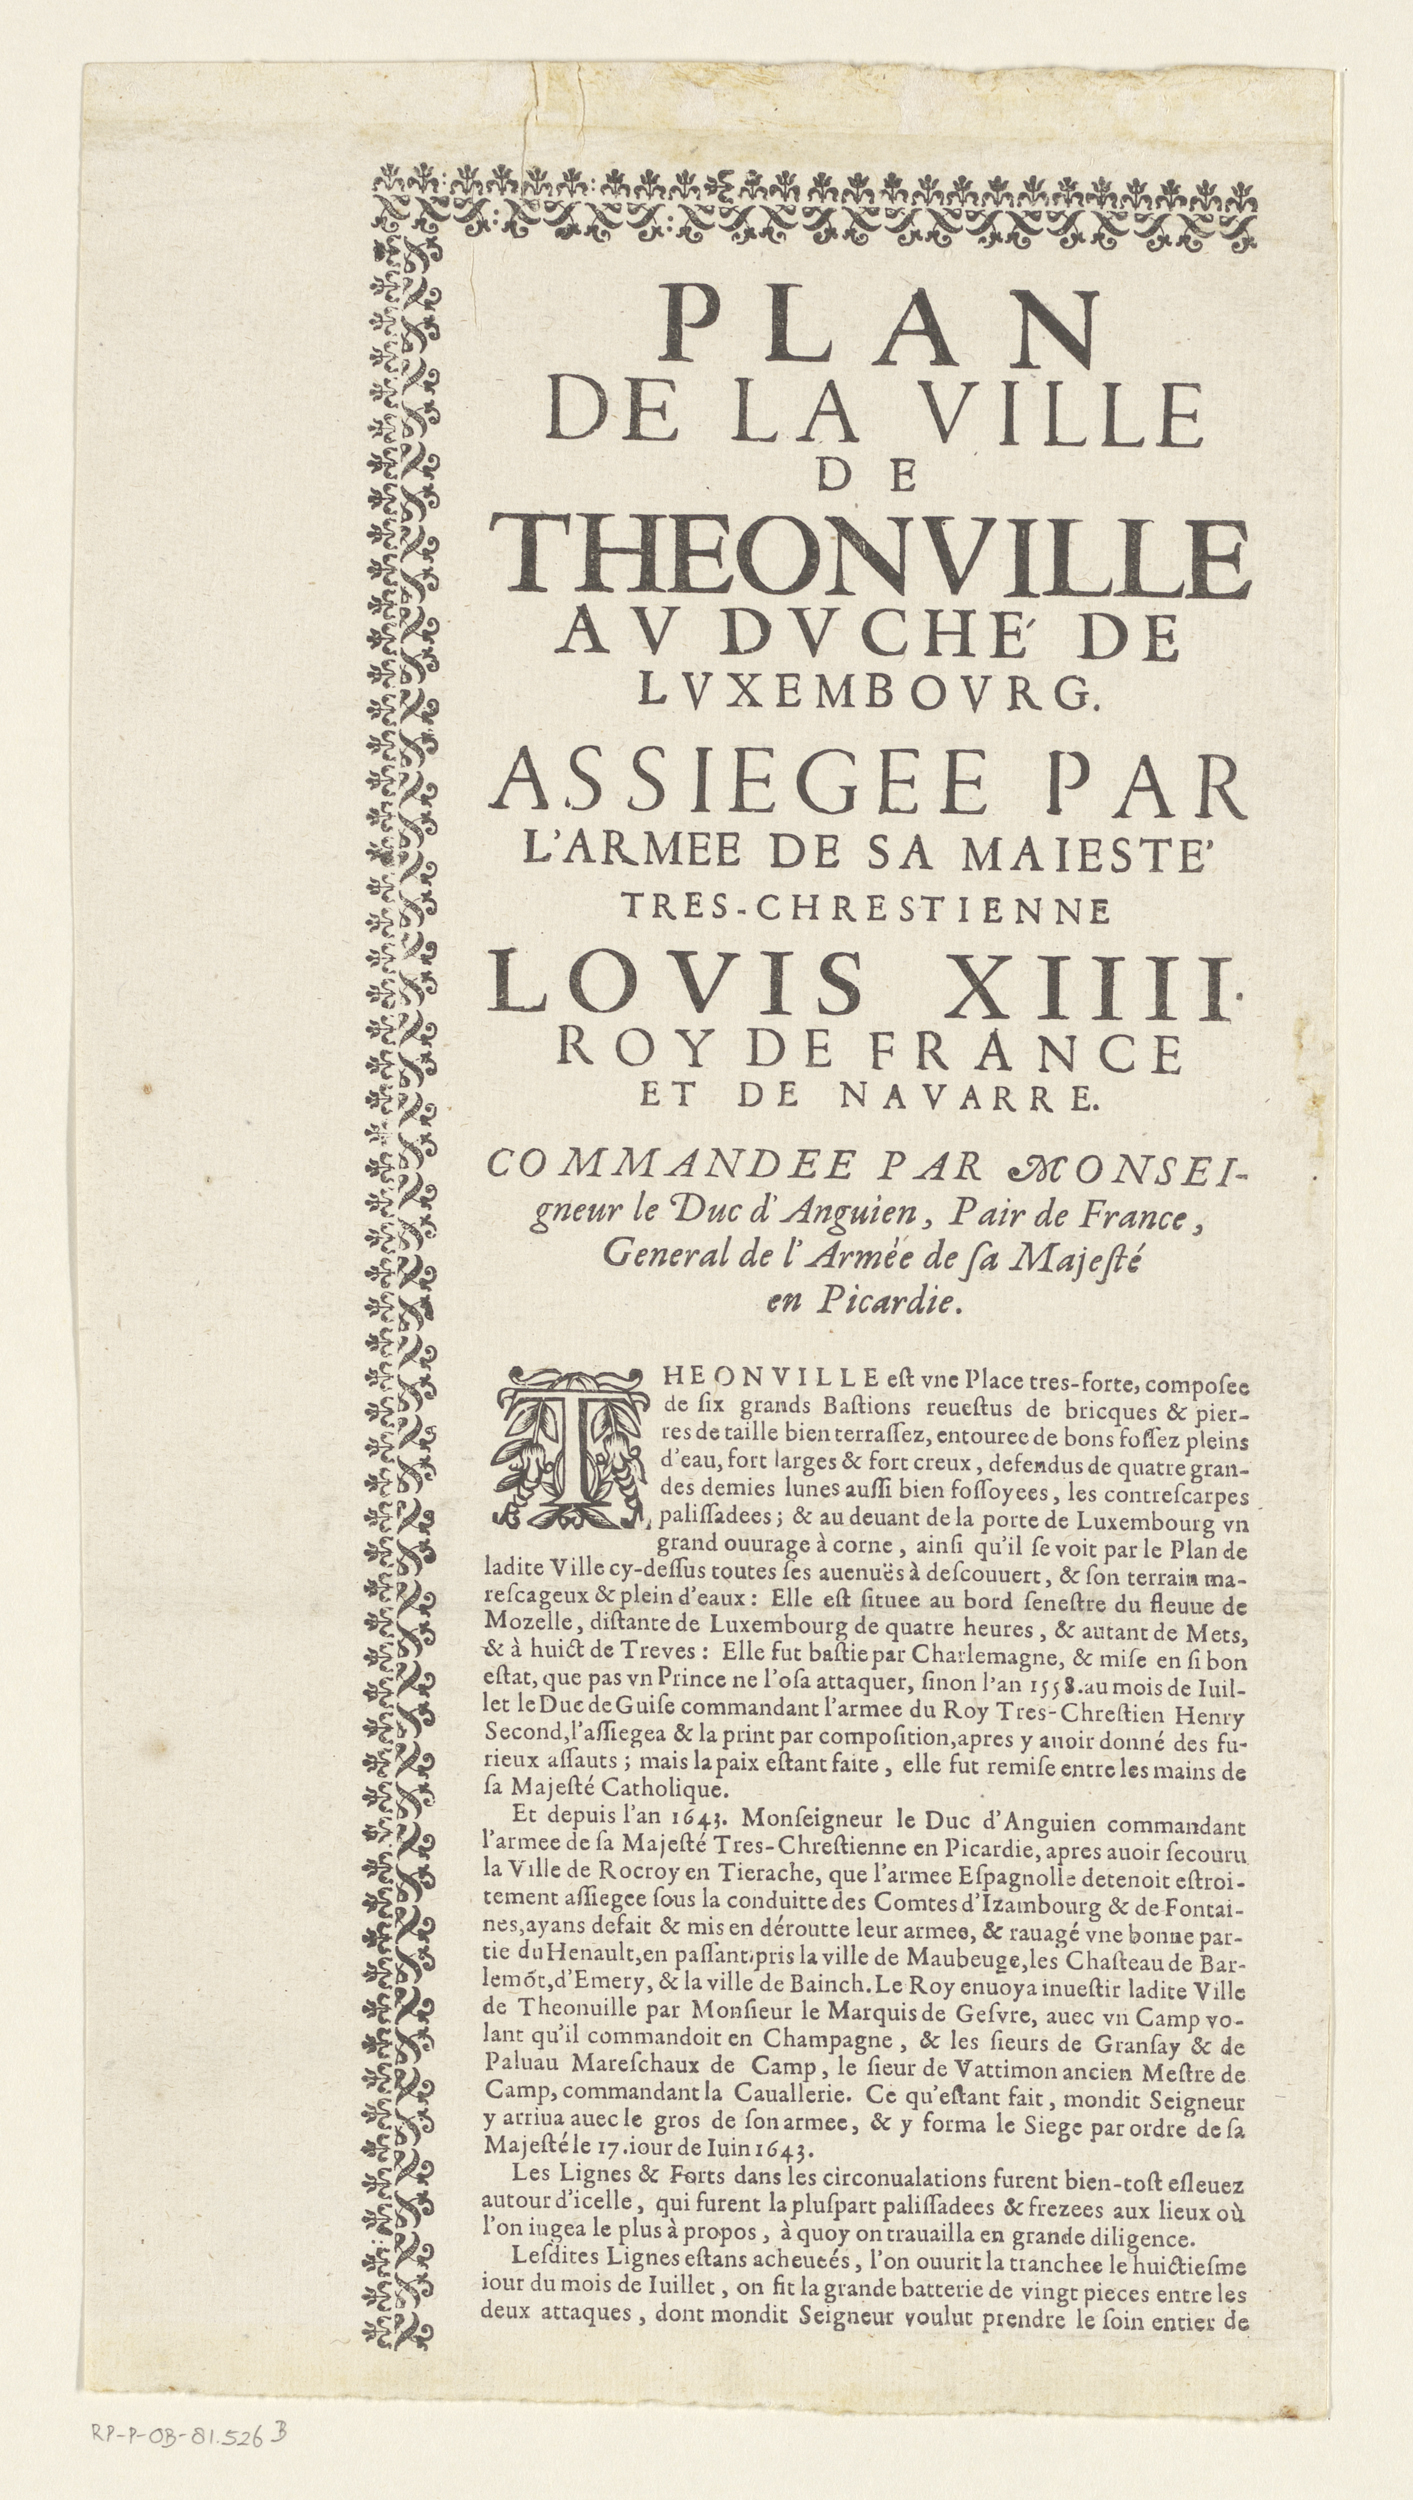 PLAN
DE LA VILLE
DE
THEONVILLE
AV DVCHE' DE
LVXEMBOVRG.
ASSIEGEE PAR
L'ARMEE DE SA MAIESTE'
TRES-CHRESTIENNE
LOVIS XIIII.
ROY DE FRANCE
ET DE NAVARRE.
COMMANDEE PAR MONSEI-
gneur le Duc d'Anguien, Pair de France,
General de l'Armée de ſa Majeſté
en Picardie.
THEONVILLE eſt vne Place tres-forte, compoſee
de ſix grands Baſtions reueſtus de bricques & pier-
res de taille bien terraſſez, entouree de bons foſſez pleins
d'eau, fort larges & fort creux, defendus de quatre gran-
des demies lunes auſſi bien foſſoyees, les contreſcarpes
paliſſadees; & au deuant de la porte de Luxembourg vn
grand ouurage à corne, ainſi qu'il ſe voit par le Plan de
ladite Ville cy-deſſus toutes ſes auenuës à deſcouuert, & ſon terrain ma-
reſcageux & plein d'eaux: Elle eſt ſituee au bord ſeneſtre du fleuue de
Mozelle, diſtante de Luxembourg de quatre heures, & autant de Mets,
& à huict de Treves: Elle fut baſtie par Charlemagne, & miſe en ſi bon
eſtat, que pas vn Prince ne l'oſa attaquer, ſinon l'an 1558. au mois de Iuil-
let le Duc de Guiſe commandant l'armee du Roy Tres-Chreſtien Henry
Second, l'aſſiegea & la print par compoſition, apres y auoir donné des fu-
rieux aſſauts; mais la paix eſtant faite, elle fut remiſe entre les mains de
ſa Majeſté Catholique.
Et depuis l'an 1643. Monſeigneur le Duc d'Anguien commandant
l'armee de ſa Majeſté Tres-Chreſtienne en Picardie, apres auoir ſecouru
la Ville de Rocroy en Tierache, que l'armee Eſpagnolle detenoit eſtroi-
tement aſſiegee ſous la conduitte des Comtes d'Izambourg & de Fontai-
nes, ayans defait & mis en déroutte leur armee, & rauagé vne bonne par-
tie du Henault, en paſſant pris la ville de Maubeuge, les Chaſteau de Bar-
lemõt, d'Emery, & la ville de Bainch. Le Roy enuoya inueſtir ladite Ville
de Theonuille par Monſieur le Marquis de Geſvre, auec vn Camp vo-
lant qu'il commandoit en Champagne, & les ſieurs de Granſay & de
Paluau Mareſchaux de Camp, le ſieur de Vattimon ancien Meſtre de
Camp, commandant la Cauallerie. Ce qu'eſtant fait, mondit Seigneur
y arriua auec le gros de ſon armee, & y forma le Siege par ordre de ſa
Majeſté le 17. iour de Iuin 1643.
Les Lignes & Forts dans les circonualations furent bien-toſt eſleuez
autour d'icelle, qui furent la pluſpart paliſſadees & frezees aux lieux où
l'on iugea le plus à propos, à quoy on trauailla en grande diligence.
Leſdites Lignes eſtans acheueés, l'on ouurit la tranchee le huictieſme
iour du mois de Iuillet, on fit la grande batterie de vingt pieces entre les
deux attaques, dont mondit Seigneur voulut prendre le ſoin entier de
RP-P-OB-81.526 B